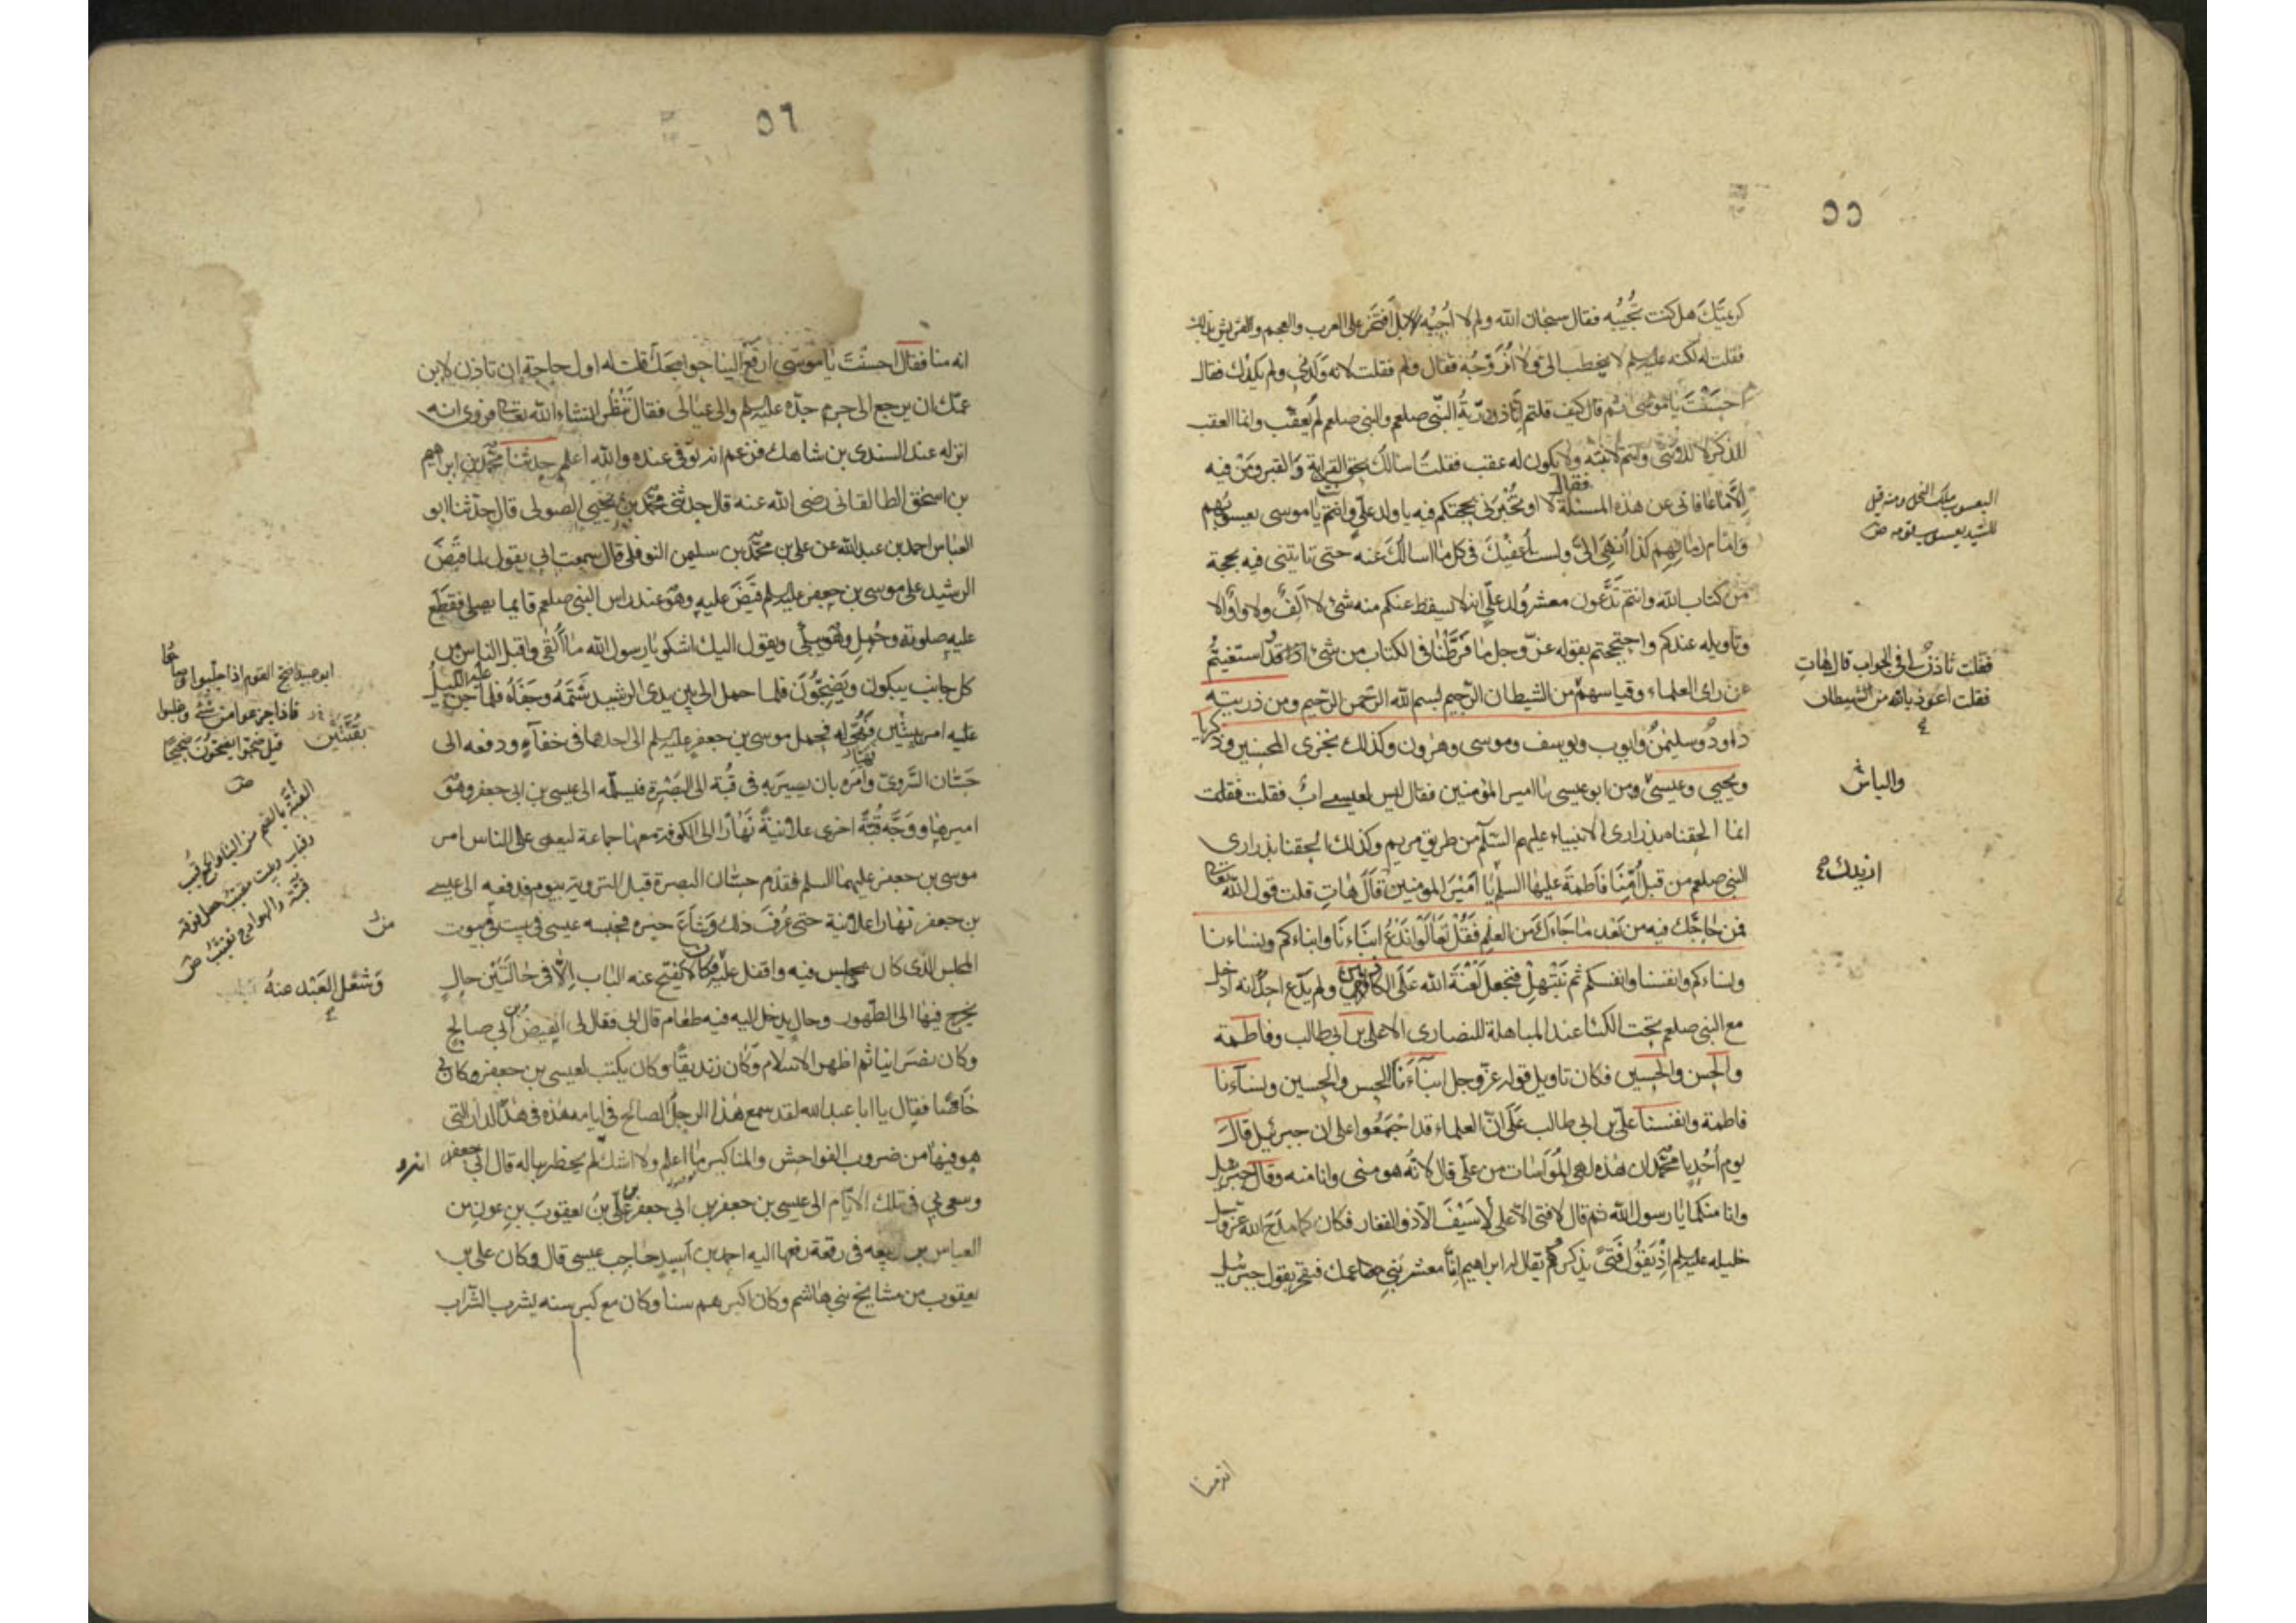 ٥٥
كريمتك هل كنت تُجيبُه فقال سبحان الله ولم لا اُجيبُه بل اَفتخر على العرب والعجم والقريش بذلك
فقلت له لكنه عليه السلم لا يخطب الى ولا اُزوّجُه فقال ولم فقلت لانه وَلَدَنى ولم يَلِدْك فقال
احسَنْتَ يا موسى ثم قال كيف قلتم اِنّا ذرّيةُ النّبى صلعم والنبى صلعم لم يُعقّب وانما العقب
للذكر لا للانثى وانتم لابنته ولا يكون له عقب فقلت اسالكَ بحق القرابة والقبر ومَنْ فيه
اِلّا ما عافانى عن هذه المسئلة فقال لا او تُخبِرَنى بحجتكم فيه يا ولد علىّ وانتَ يا موسى يعسوبُهم
وامام زمانهم كذا اُنهِىَ الىّ ولستُ اُعفيكَ فى كل ما اسالكَ عنه حتى تاتينى فيه بحجة
من كتاب الله وانتم تدّعون معشر ولد علىّ انه لا يسقط عنكم منه شئ لا الف ولا واو الا
وتاويله عندكم واحتججتم بقوله عزّ وجل ما فَرَّطْنا فى الكتاب من شئ وقد استغنيتم
عن راى العلماء وقياسهم من الشيطان الرّجيم بسم الله الرّحمن الرّحيم ومن ذريته
داود وسليمن وايوب ويوسف وموسى وهرون وكذلك نجزى المحسنين وزكريا
ويحيى وعيسى ومن ابو عيسى يا امير المؤمنين فقال ليس لعيسى ابٌ فقلت فقلت
انما الحقناه بذرارى الانبياء عليهم السّلم من طريق مريم وكذلك اُلحقنا بذرارى
النبى صلعم من قبل اُمّنا فاطمة عليها السلم يا امير المومنين قال هاتِ قلت قول الله تعالى
فمن حاجّك فيه من بَعْد ما جاءك من العلم فقُلْ تَعالَوْا نَدْعُ ابناءنا وابناءكم ونساءنا
ونساءكم وانفسنا وانفسكم ثم نَبْتَهِلْ فنجعل لعْنَةَ الله على الكاذبين ولم يدّع احدٌ انه ادخل
مع النبى صلعم تحت الكسا عند المباهلة للنصارى الا على بن ابى طالب وفاطمة
والحسن والحسين فكان تاويل قوله عزّ وجل ابنآءنا الحسن والحسين ونسآءنا
فاطمة وانفسنا علىّ بن ابى طالب على انّ العلماء قد اجْمَعُوا على ان جبرئيل قال
يوم اُحُد يا محمّد ان هذه لهى المُواسات من علّى قال لانّه هو منى وانا منه وقال جبرئيل
وانا منكما يا رسول الله ثم قال لا فتى الّا على لا سَيْفَ الّا ذو الفقار فكان كما مدَحَ الله عزّ وجل
خليله عليه السلم اِذْ يَقُول فَتًى يذكرهم يقال له ابراهيم اِنّا معشر بنى عمك نفتخر بقول جبرئيل
اليعسوب ملك النحل ومنه قيل
للسيد يعسوب قومه
فقلت تاذنُ لى فى الجواب قال هاتِ
فقلت اعوذ بالله من الشيطان
والياس
ازيدك
انه منا
٥٦
انه منا فقال احسنْتَ يا موسى ارفَعْ الينا حوايجكَ قلت له اول حاجة ان تاذن لابن
عمّك ان يرجع الى حرم جدّه عليه السلم والى عيالى فقال نَنْظُر انشاء الله تعالى فروى انه
انزله عند السندى بن شاهك فزعم انه توفى عنده والله اعلم حدثنا محمّد بن ابراهيم
بن اسحق الطالقانى رضى الله عنه قال حدثنى محمّد بن يحيى الصولى قال حدّثنا ابو
العبّاس احمد بن عبد الله عن على بن محمّد بن سليمن النوفلى قال سمعت ابى يقول لما قبَضَ
الرشيد على موسى بن جعفر عليه السلم قَبَضَ عليه وهو عند راس النبى صلعم قايما يصلى فقطع
عليه صلوته وحُمِل وهو يبكى ويقول اليك اشكو يا رسول الله ما اَلْقى واقبل الناس من
كل جانب يبكون ويَضِجّون فلما حمل الى بين يدى الرشيد شَتَمَهُ وجفاهُ فلما جنّ عليه الليلُ
عليه امر ببيتين فهُيّئ له فحمل موسى بن جعفر عليه السلم الى احدهما فى خفآءٍ ودفعه الى
حسّان السّروىّ وامره بان يسير به فى قبة الى البَصْرَة فيسلّمه الى عيسى بن ابى جعفر وهو
اميرها ووجّه قُبّةً اخرى علانيةً نهارًا الى الكوفة معها جماعة ليعمى على الناس امر
موسى بن جعفر عليهما السلم فقدم حسّان البصرة قبل التروية بيوم فدفعه الى عيسى
بن جعفر نهارا علانية حتى عُرِفَ ذلك وشاعَ خبره فحبسه عيسى فى بيت من بيوت
المجلس الذى كان يجلس فيه واقفل عليه فكان لا يُفتح عنه الباب اِلّا فى حالتَيْن حالٍ
يخرج فيها الى الطّهور وحالٍ يدخل اليه فيه طعام قال ابى فقال لى الفيضُ بن ابى صالح
وكان نصرَانيا ثم اظهر الاسلام وكان زنديقًا وكان يكتب لعيسى بن جعفر وكان بى
خاصّا فقال يا ابا عبد الله لقد سمع هذا الرجل الصالح فى ايامه هذه فى هذه الدار التى
هو فيها من ضروب الفواحش والمناكير ما اعلم ولا اشك لم يخطر بباله قال ابى
وسعى بى فى تلك الايّام الى عيسى بن جعفر بن ابى جعفر علىّ بنُ يعقوبَ بن عون بن
العباس بن ربيعه فى رقعة رفعها اليه احمد بن اَسيد حاجب عيسى قال وكان على بن
يعقوب من مشايخ بنى هاشم وكان اكبرهم سنا وكان مع كبر سنه يشرب الشّراب
ابو عبيد اضج القوم اذا جلبوا وصاحُوا
فاذا جزعوا من شئ وغلبوا
قيل ضجّوا يضجّون ضجيجًا
بقُبّتَيْن
القبّة بالضم من البناء والجمع قُبب
وقباب
وشُغل العَبْد عنهُ